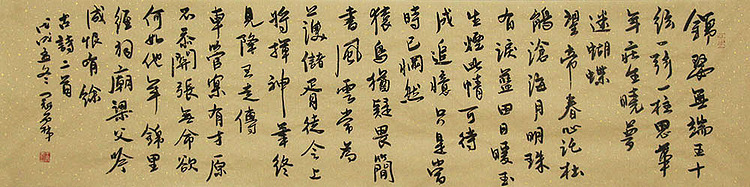 錦瑟無端五十
弦一弦一柱思華
年莊生曉夢
迷蝴蝶
望帝春心託杜
鵑滄海月明珠
有淚藍田日暖玉
生煙此情可待
成追憶只是當
時已惘然
猿鳥猶疑畏簡
書風雲常為
護儲胥徒令上
將揮神筆終
見降王走傳
車管樂有才原
不忝關張無命欲
何如他年錦里
經祠廟梁父吟
成恨有餘
古詩二首
丙戌孟冬